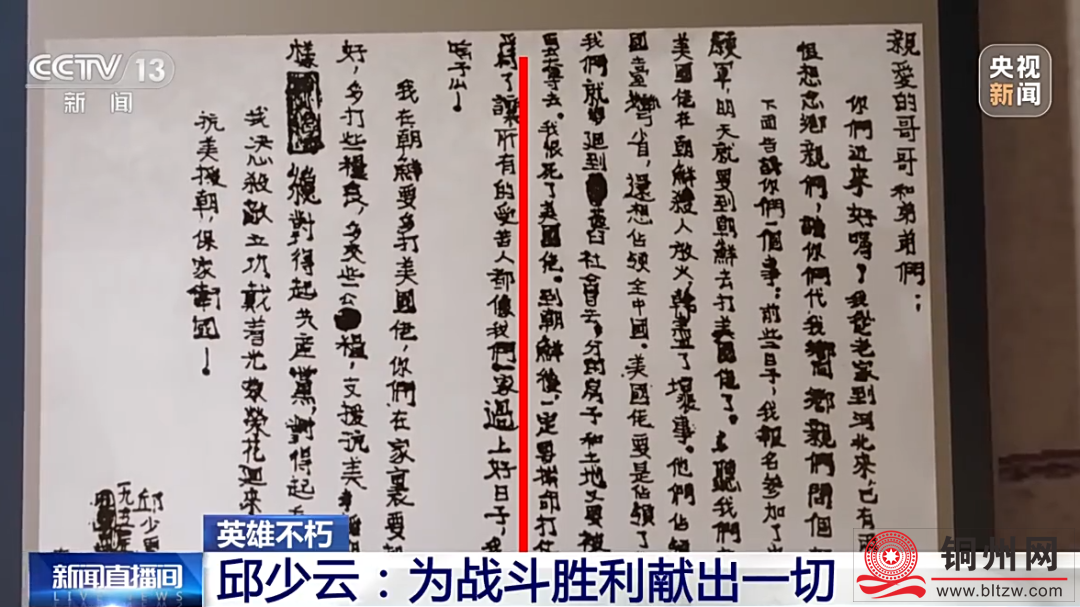 CCTV 13
新闻
央视
新闻
親愛的哥哥和弟弟們：
你們近來好嗎？我從老家到河北來，已有
但想念鄉親們，請你們代我向鄉親們問個
下面告訴你們一個事：前些日子，我報名參加了
願軍，明天就要到朝鮮去打美國佬了。聽我們
美國佬在朝鮮殺人放火，幹盡了壞事。他們佔領
國臺灣省，還想佔領全中國。美國佬要是佔領了
我們就迴到舊社會去，分的房子和土地又要被
去。我恨死了美國佬。到朝鮮後，一定要拼命打
爲了讓所有的受苦人都像我們家過上好日子，我
啥子么！
我在朝鮮要多打美國佬，你們在家裏要
好，多打些糧食，多交些公糧，支援抗美
樣 對得起共産黨，對得起
我決心殺敵立功，戴着光榮花迴來
抗美援朝，保家衛國！
邱少
一九五
英雄不朽
新闻直播间
LIVE NEWS
邱少云：为战斗胜利献出一切
铜州网
www.bltzw.com